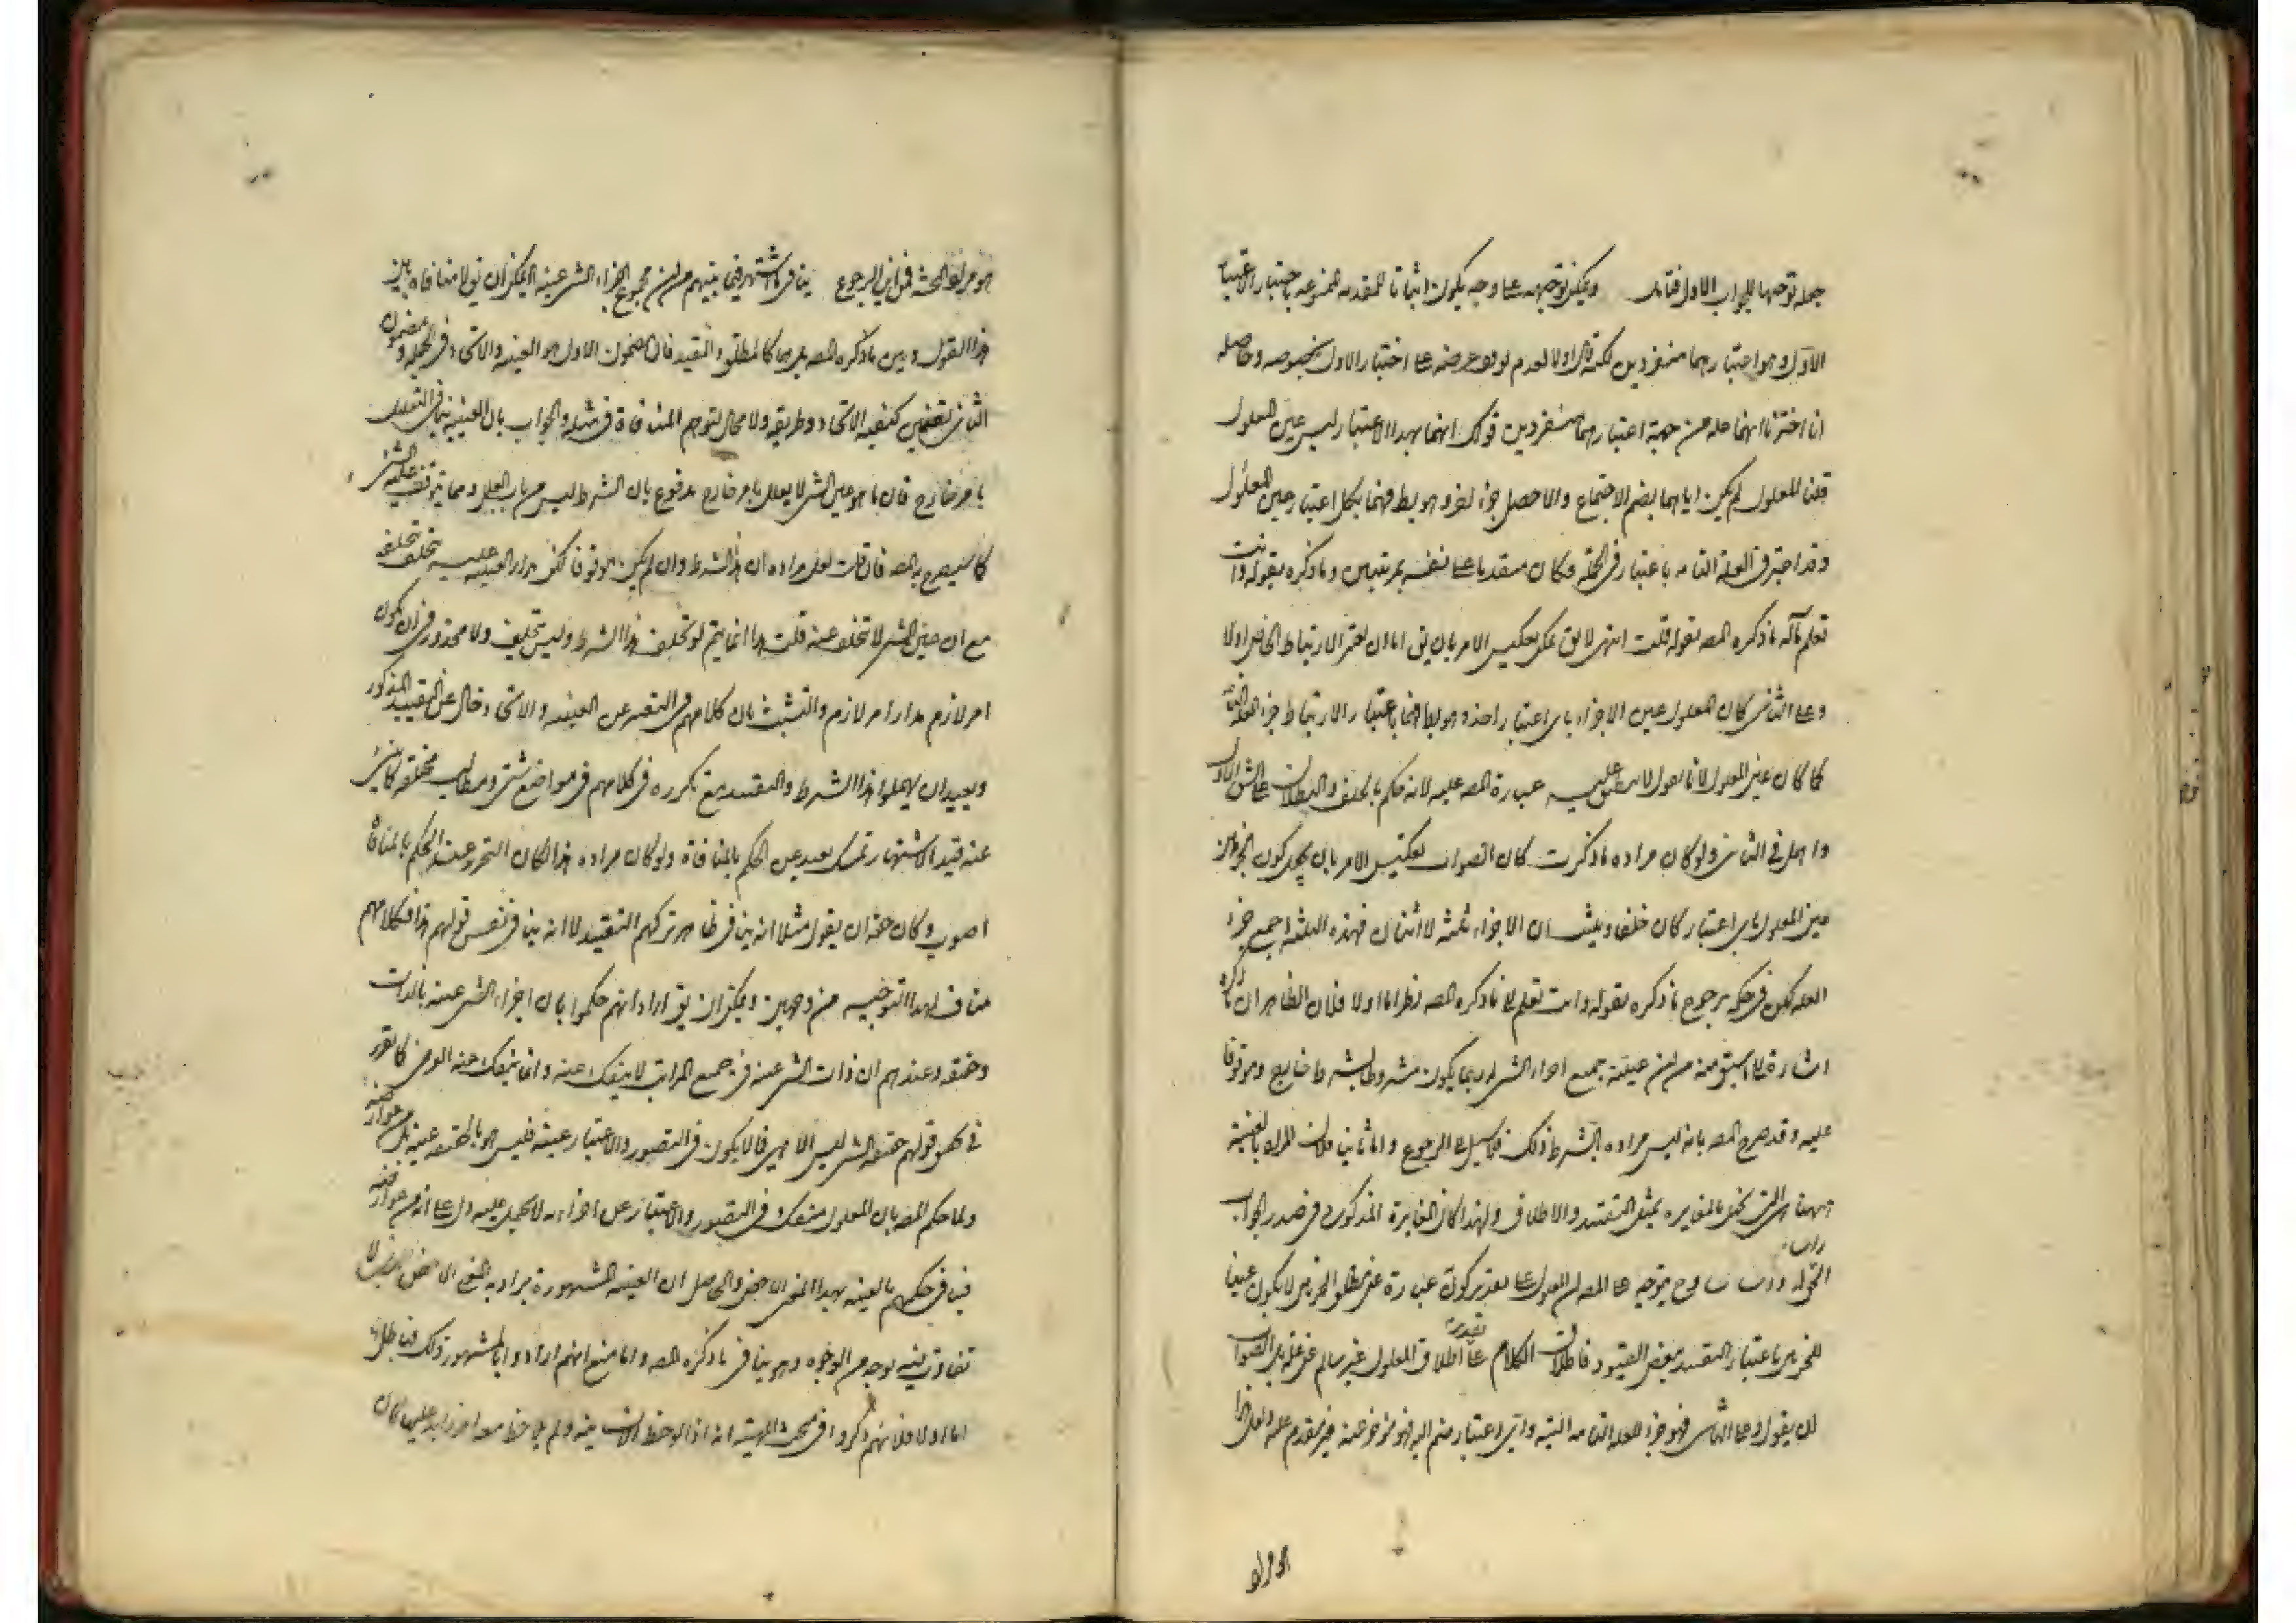 جمله توجيها للجواب الاول فتامل ويمكن توجيهه على وجه يكون اثباتا للمقدمه الممنوعه باختيار الاعتبار
الاول وهو اعتبارهما منفردين لكنه اولا لعدم على اختيار الاول بخصوصه وحاصله
انا اخترنا انهما من جهة اعتبارهما منفردين قولك انهما بهذا الاعتبار ليس عين المعلول
قلنا المعلول لم يكن اياهما بضم الاجتماع والا حصل جزء اخر وهو بط فهما بكل اعتبار عين المعلول
وقد اعتبر فى العلة التامه باعتبار فى الجملة فكان متقدما على نفسه بمرتبتين وما ذكره بقوله وانت
تعلم مآله ما ذكره المصه بقوله قلت انتهى لا يق يمكن تعكيس الامر بان يق اما ان يعتبر الارتباط الخاص اولا
وعلى الثانى كان المعلول عين الاجزاء باى اعتبار اخذ وهو بط فهما باعتبار الارتباط جزء العلة التامه
كما كان عين المعلول لانا نقول لا ينطبق عليه عبارة المصه عليه لانه حكم بالخلف والبطلان على الشق الاول
واهمل فى الثانى ولو كان مراده ما ذكرت كان الصواب تعكيس الامر بان يجعل كون الجزئين
عين المعلول باى اعتبار كان خلفا ويثبت ان الاجزاء ثلثة لا اثنان فهذه الثلثة اجمع جزء
العله لكن فى حكمه برجوع ما ذكره بقوله وانت تعلم الى ما ذكره المصه نظر اما اولا فلان الظاهر ان ما ذكره
اشارة الى ما سبق منه من ان عينية جميع اجزاء الشى له ربما يكون مشروطا بشرط خارج وموقوفا
عليه وقد صرح المصه بانه ليس مراده بالشرط ذلك فلا سبيل الى الرجوع واما ثانيا فلان المراد بالعينية
ههنا التى تخل بالمغايره بمثل التقييد والاطلاق ولهذا كان المغايرة المذكورة فى صدر الجواب
يتوجه على المصه ان المعلول على تقدير كونه عبارة عن مطلق الجزئين لا يكون عينا
للجزئين باعتبار التقييد ببعض القيود فاطلاق الكلام على تقدير اطلاق المعلول غير سالم عن بل الصواب
ان يقول وعلى الثانى فهو جزء العله التامه البتة وأي اعتبار منضم اليه فهو مؤخر عنه
هو مراد المحشى فى الرجوع ينافى ما اشتهر فيما بينهم من ان مجموع اجزاء الشى عينه الخ يمكن ان يق لا منافاه بين
هذا القول وبين ما ذكره المصه بل هما كالمطلق والمقيد فان مضمون الاول هو العينيه والاتحاد فى الجمله ومضمون
الثانى تعيين كيفيه الاتحاد وطريقه ولا مجال لتوهم المنافاة فى مثله والجواب بان العينيه ينافى التعليل
بامر خارج فان ما هو عين الشى لا يعلل بامر خارج مدفوع بان الشرط ليس من باب العلل ومما يتوقف عليه الشى
كما سيصرح به المصه فان قلت لعل مراده ان هذا الشرط وان لم يكن موقوفا لكن مدار العينيه عليه يتخلف بتخلفه
مع ان عين الشى لا يتخلف عنه قلت هذا انما يتم لو تخلف هذا الشرط وليس يتخلف ولا محذور فى ان يكون
امر لازم مدار امر لازم والتشبث بان كلامهم فى التعبير عن العينيه والاتحاد خال عن التقييد المذكور
وبعيد ان يهملوا هذا الشرط والتقييد مع تكرره فى كلامهم فى مواضع شتى ومطالب مختلفه
عنه قيد الاشتهار تمسك بعيد عن الحكم بالمنافاة ولو كان مراده هذا لكان التحرز عنه الحكم بالمنافاة
اصوب وكان حقه ان يقول مثلا انه ينافى ظاهر تركهم التقييد لا انه ينافى نفس قولهم هذا فكلامهم
مناف لهذا التوجيه من وجهين ويمكن ان يق اراد انهم حكموا بان اجزاء الشى عينه بالذات
وحقيقه وعندهم ان ذات الشى عينه فى جميع المراتب لا ينفك عنه وانما ينفك عنه العرض كما تقرر
قولهم حقيقة الشى ليس الا هى فما لا يكون فى التصور والاعتبار عينه فليس هو بالحقيقه عينه بل من عوارضه
ولما حكم المصه بان المعلول منفك فى التصور والاعتبار عن اجزائه لا يحمل عليه دل على انه من عوارضه
فينافى حكمهم بالعينيه بهذا المعنى الاخص والحاصل ان العينيه المشهورة يراد به المعنى الاخص الذى لا
تفاوت فيه بوجه من الوجوه وهو ينافى ما ذكره المصه واما منع انهم ارادوا بالمشهور ذلك فباطل
اما اولا فلانهم ذكروا فى بحث المهيه انه اذا لوحظ الانسانيه ولم يلاحظ معه امر زايد عليه كان